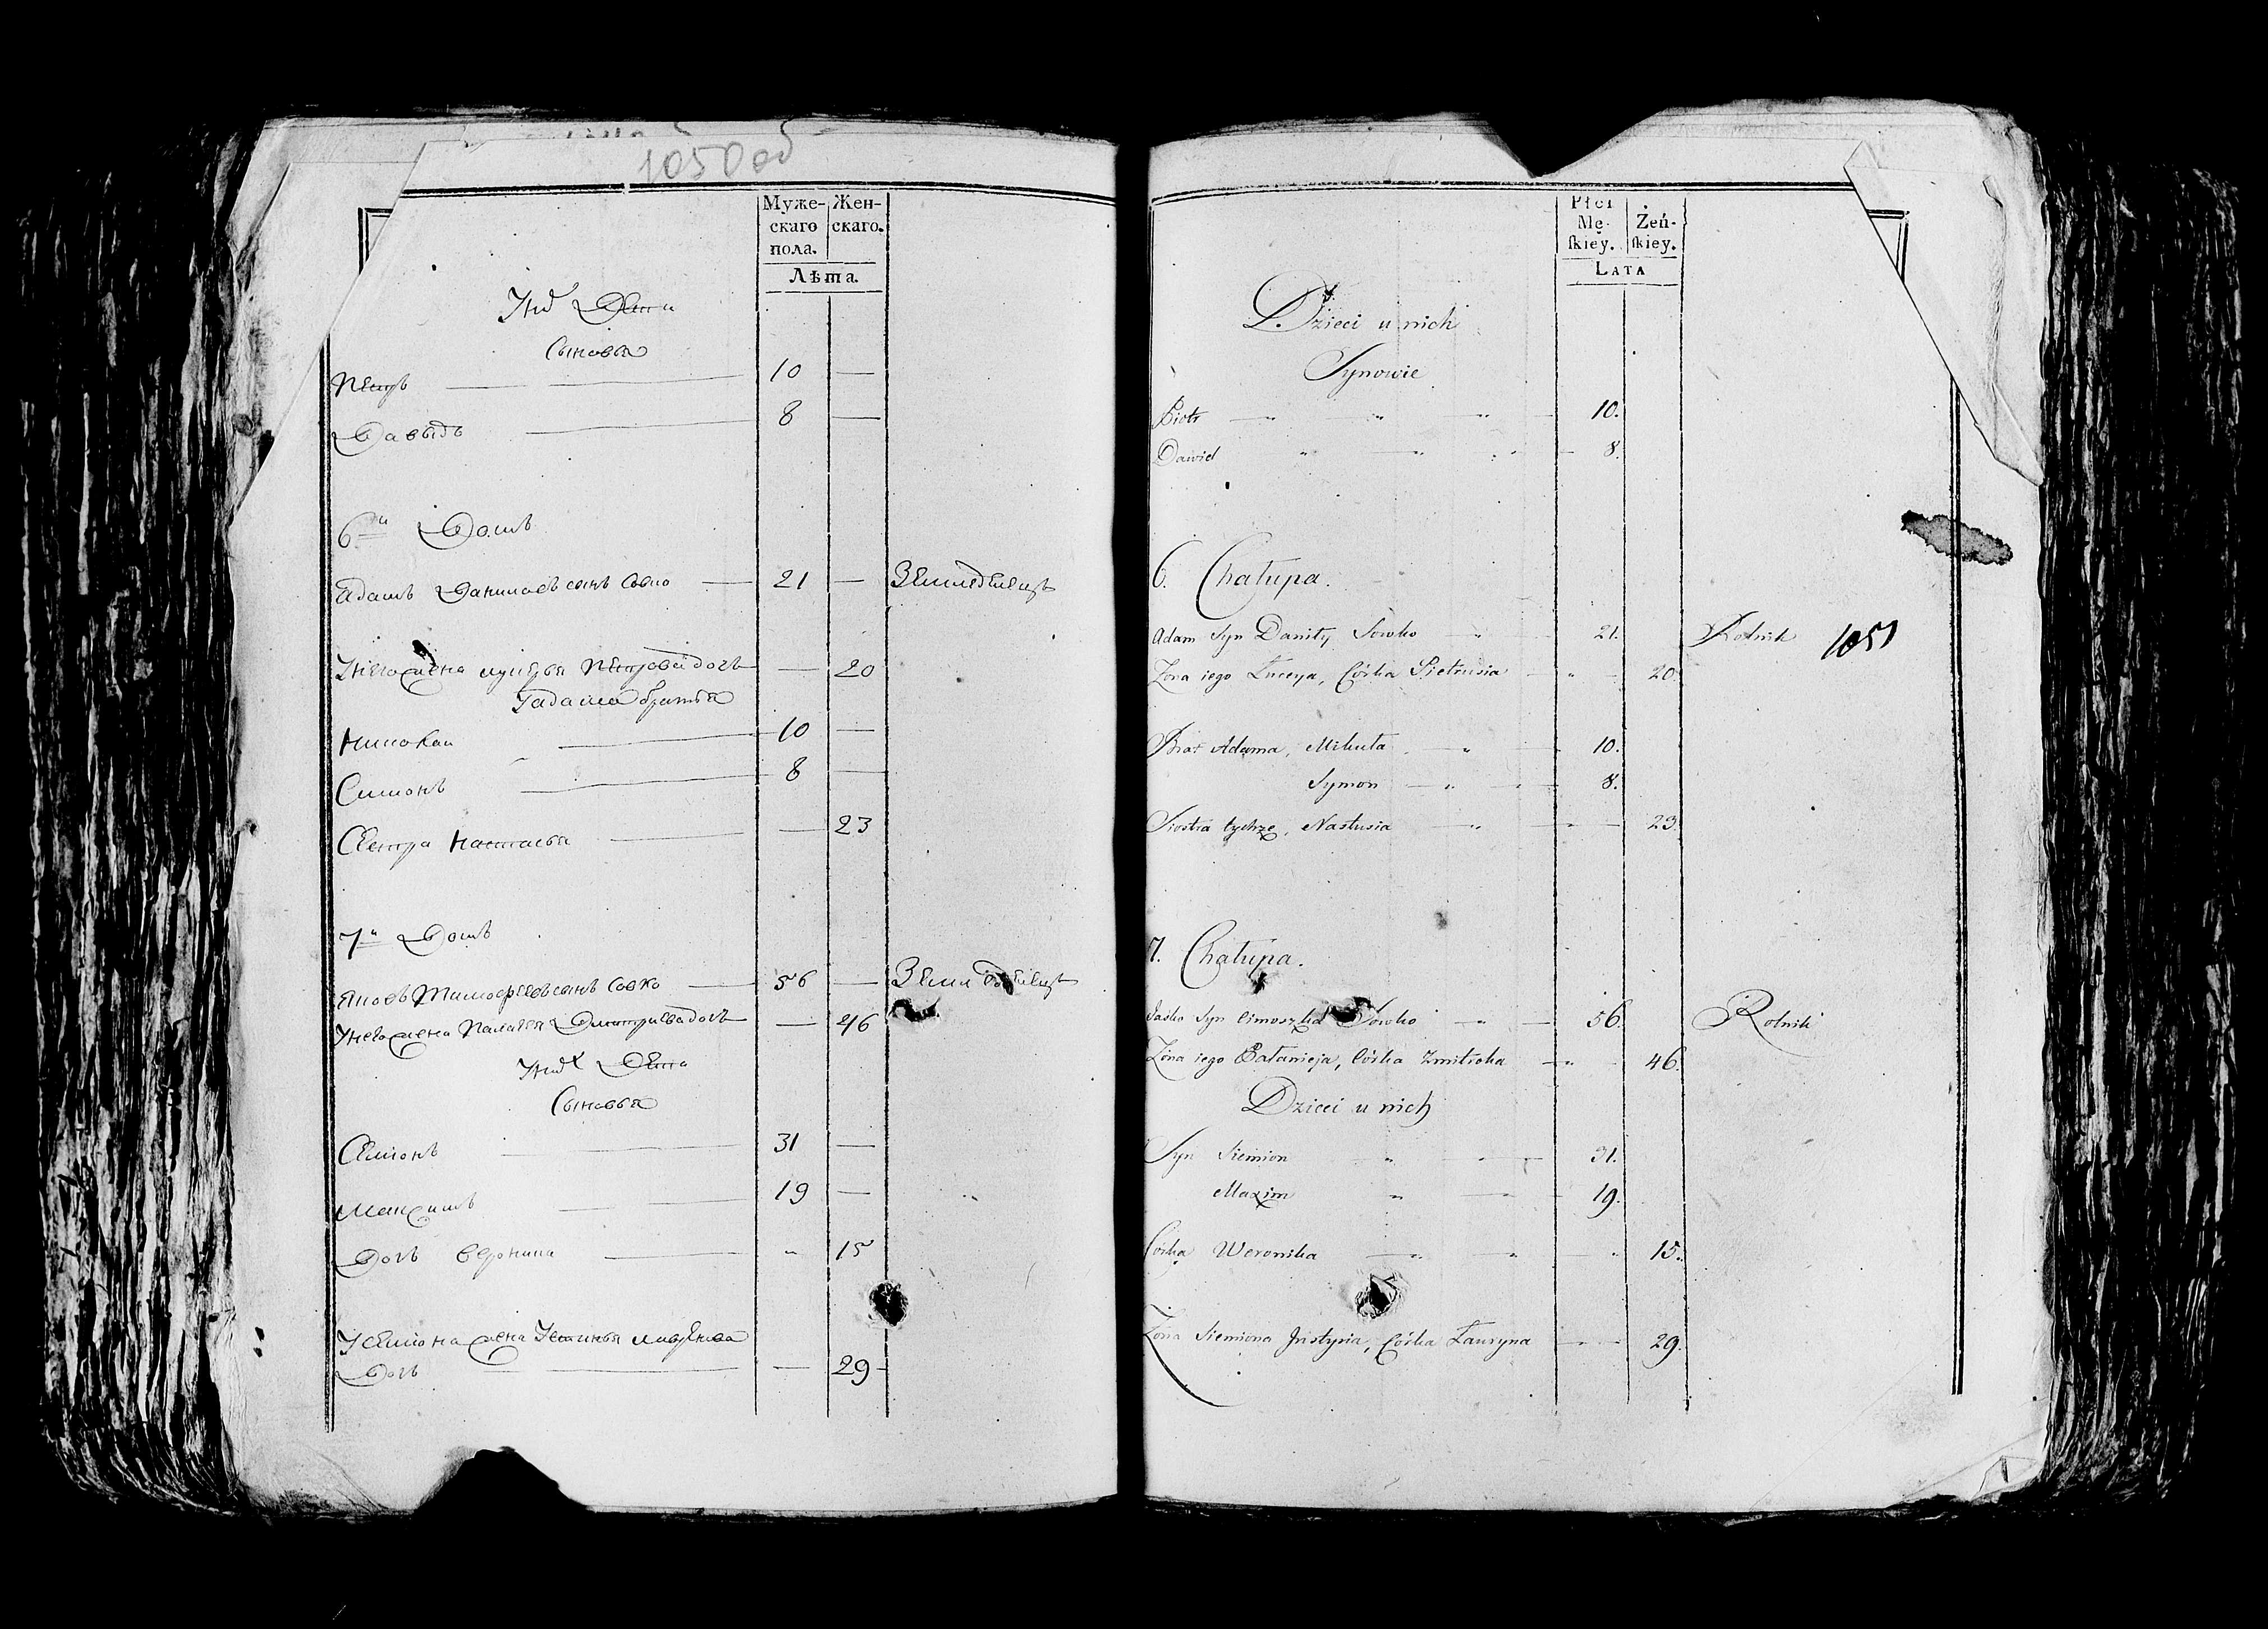 1050об
Муже-
скаго
пола.
Жен-
скаго.
Лѣта.
У нихъ Дети
Сыновья
Петръ 10 —
Давыдъ 8 —
6й Домъ
Адамъ Даниловъ сынъ Совко 21 — Земледелецъ
У него жена Луцея Петрова дочь — 20
У адама братья
Миколай 10 —
Симонъ 8 —
Сестра Настасья — 23
7й Домъ
Яковъ Тимофеевъ сынъ Совко 56 — Земледелецъ
У него жена Палагея Дмитриева дочь — 46
У нихъ Дети
Сыновья
Семіонъ 31 —
Максимъ 19 —
Дочь Вероника " 15
У Семіона жена Устинья Лавренова
Дочь — 29
Płci
Mę-
ſkiey.
Żeń-
ſkiey.
LATA
Dzieci u nich
Synowie
Piotr 10.
Dawid 8.
6. Chałupa.
Adam Syn Daniły Sowko 21. Rolnik 1051
Zona iego Łuceya, Córka Pietrusia 20.
Brat Adama, Mikuła 10.
Symon 8.
Siostra tychże, Nastusia 23.
7. Chałupa.
Jasko Syn Cimoszka Sowko 56. Rolnik
Zona iego Pałanieja, Córka Zmitroka 46.
Dzieci u nich
Syn Siemion 31.
Maxim 19.
Córka Weronika 15.
Zona Siemiona Justynia, Córka Ławryna 29.